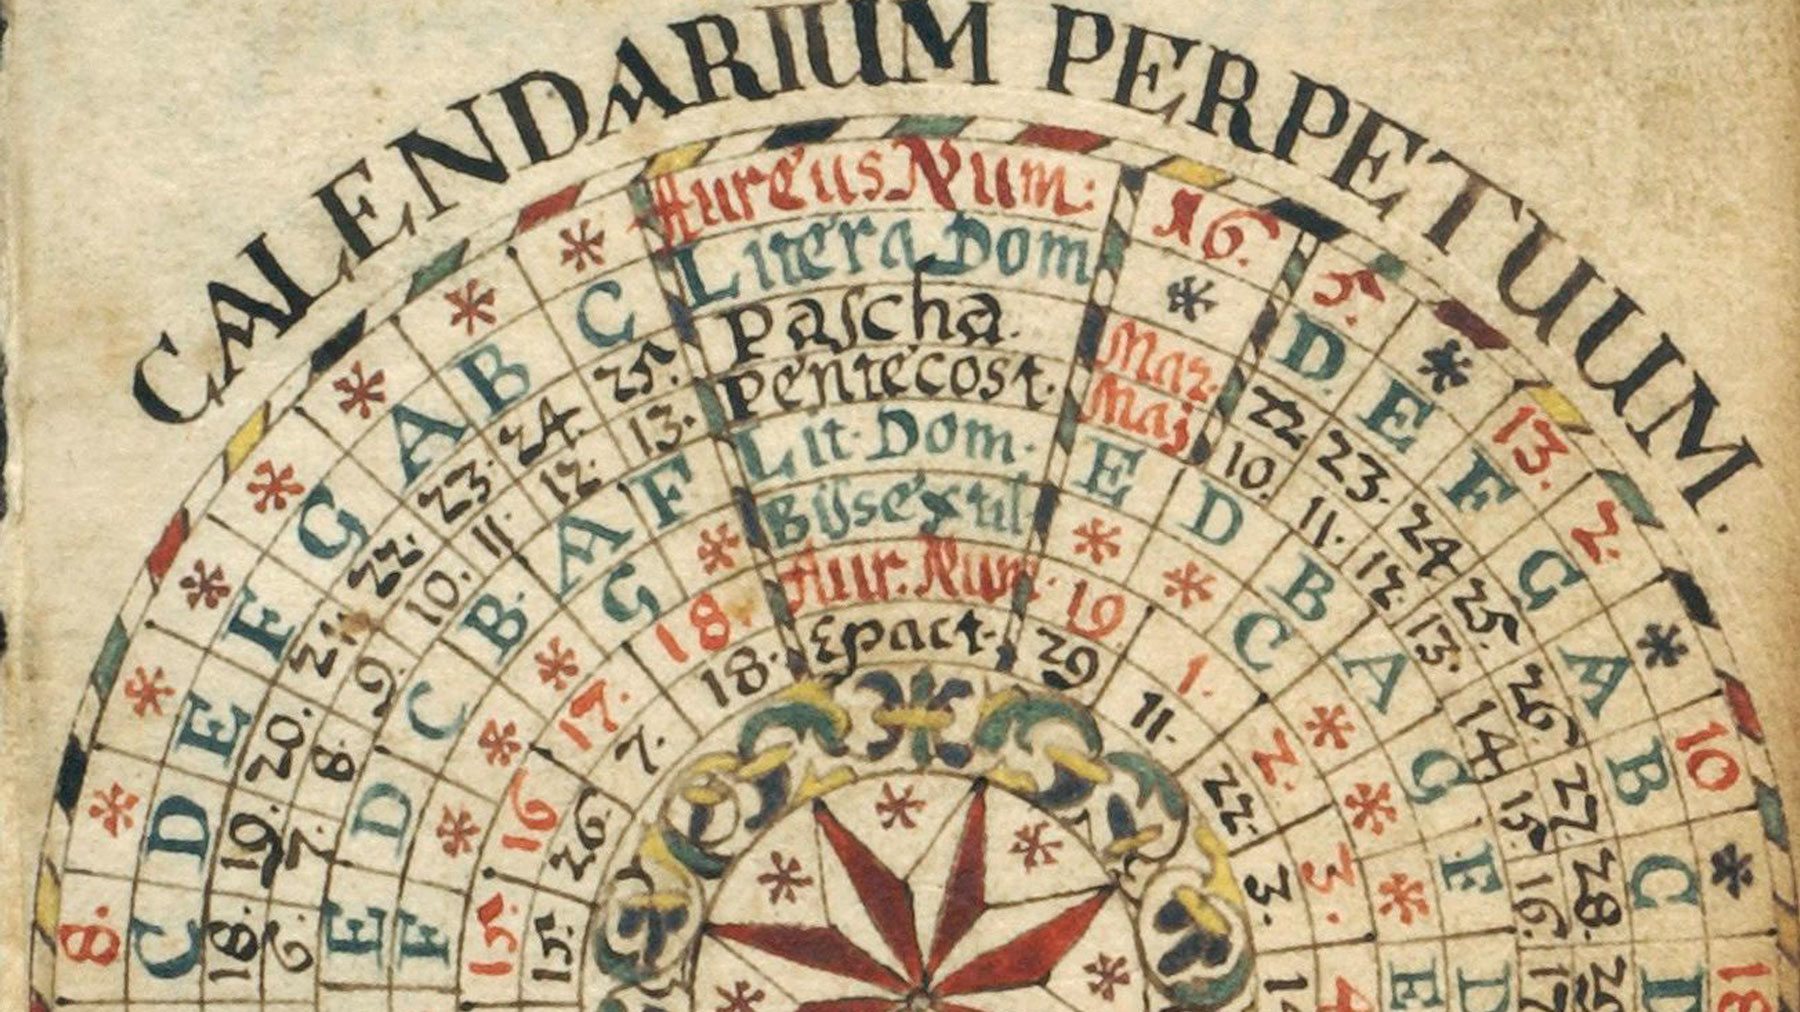 CALENDARIUM PERPETUUM.
8. Aureus Num: 16. 5. 13. 2. 10 18
C D E F G A B C Litera Dom D. E F G A B C D
18. 19. 20. 21. 22. 23. 24. 25. Pascha. Mar. 22 23. 24 25. 26 27. 28.
6. 7. 8. 9. 10. 11. 12. 13. Pentecost. Maj 10. 11. 12. 13. 14 15. 16. 17
E D C B. A F Lit. Dom. E D B A G F D
F G Bissextil C E
15. 16 17. 18. Aur. Num. 19 1. 2. 3. 4
15. 26. 7. 18. Epact. 29 11. 22. 3.